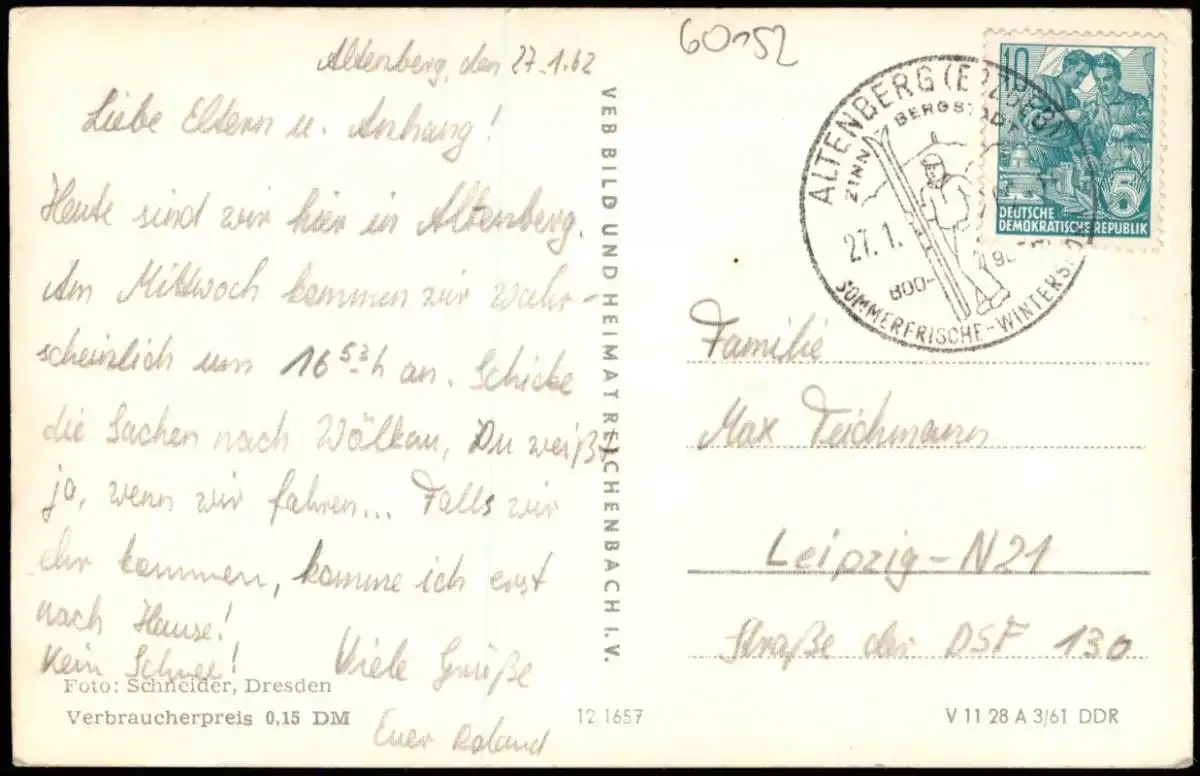 Altenberg, den 27.1.62
Liebe Eltern u. Anhang!
Heute sind wir hier in Altenberg.
Am Mittwoch kommen wir wahr-
scheinlich um 16 53 h an. Schicke
die Sachen nach Wölkau, Du weißt
ja, wenn wir fahren... Falls wir
ehr kommen, komme ich erst
nach Hause!
Kein Schnee! Viele Grüße
Euer Roland
Foto: Schneider, Dresden
Verbraucherpreis 0,15 DM
12 1657
VEB BILD UND HEIMAT REICHENBACH I. V.
60152
ALTENBERG (ERZGEB)
ZINN BERGSTADT
27.1.
800-
SOMMERFRISCHE-WINTERSP
10
5
DEUTSCHE
DEMOKRATISCHE REPUBLIK
Familie
Max Teichmann
Leipzig-N21
Straße der DSF 130
V 11 28 A 3/61 DDR